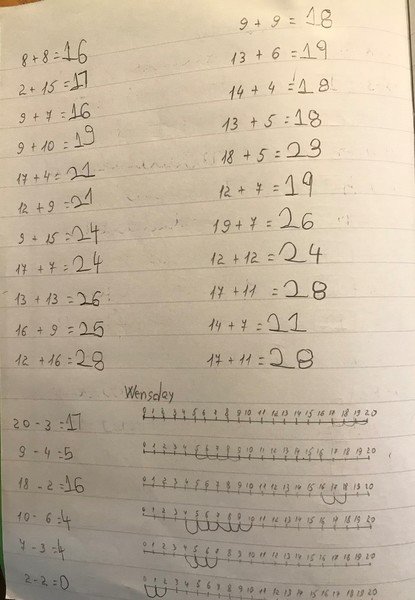 8 + 8 = 16
2 + 15 = 17
9 + 7 = 16
9 + 10 = 19
17 + 4 = 21
12 + 9 = 21
9 + 15 = 24
17 + 7 = 24
13 + 13 = 26
16 + 9 = 25
12 + 16 = 28
9 + 9 = 18
13 + 6 = 19
14 + 4 = 18
13 + 5 = 18
18 + 5 = 23
12 + 7 = 19
19 + 7 = 26
12 + 12 = 24
17 + 11 = 28
14 + 7 = 21
17 + 11 = 28
Wensday
20 - 3 = 17 0 1 2 3 4 5 6 7 8 9 10 11 12 13 14 15 16 17 18 19 20
9 - 4 = 5 0 1 2 3 4 5 6 7 8 9 10 11 12 13 14 15 16 17 18 19 20
18 - 2 = 16 0 1 2 3 4 5 6 7 8 9 10 11 12 13 14 15 16 17 18 19 20
10 - 6 = 4 0 1 2 3 4 5 6 7 8 9 10 11 12 13 14 15 16 17 18 19 20
7 - 3 = 4 0 1 2 3 4 5 6 7 8 9 10 11 12 13 14 15 16 17 18 19 20
2 - 2 = 0 0 1 2 3 4 5 6 7 8 9 10 11 12 13 14 15 16 17 18 19 20